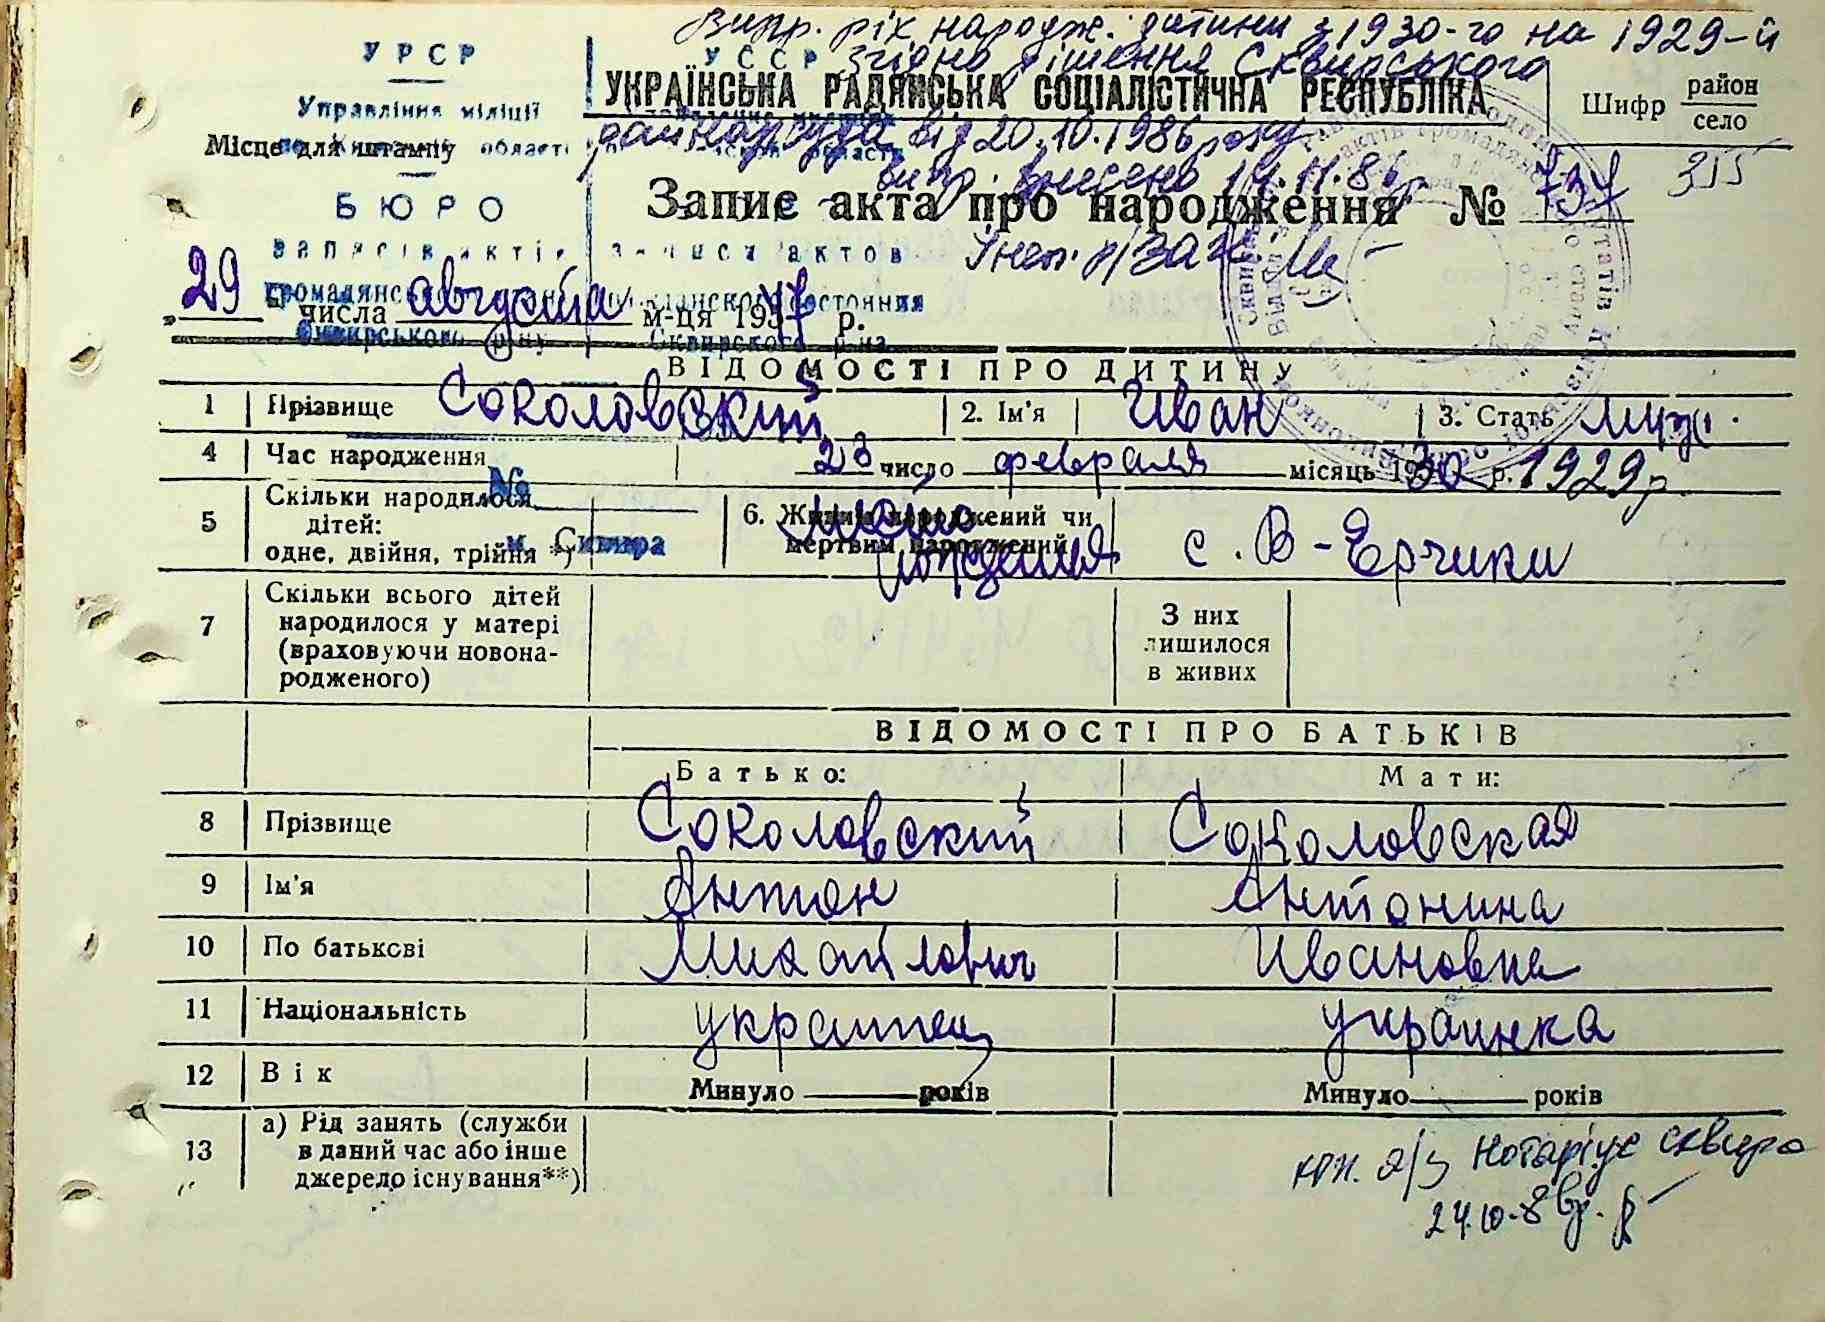 Випр. рік народж. дитини з 1930-го на 1929-й
згідно рішення Сквирського
райнарсуда від 20.10.1986 року
випр. внесено 14.11.86
УРСР УССР
УКРАЇНСЬКА РАДЯНСЬКА СОЦІАЛІСТИЧНА РЕСПУБЛІКА
Шифр район село
355
Управління міліції
Місце для штампу
БЮРО
Запис акта про народження № 737
записів актів записи актов
громадянського состояния
Сквирського р-ну Сквирского р-на
29 числа августа м-ця 1947 р.
ВІДОМОСТІ ПРО ДИТИНУ
1 Прізвище Соколовский 2. Ім'я Иван 3. Стать муж.
4 Час народження 23 число февраля місяць 1930 р. 1929 р.
№
5 Скільки народилося дітей: одне, двійня, трійня *)
м. Сквира
6. Живим народжений чи мертвим народжений
место рождения с. В-Ерчики
7 Скільки всього дітей народилося у матері (враховуючи новонародженого)
З них лишилося в живих
ВІДОМОСТІ ПРО БАТЬКІВ
Батько: Мати:
8 Прізвище Соколовский Соколовская
9 Ім'я Антон Антонина
10 По батькові Михайлович Ивановна
11 Національність украинец украинка
12 Вік Минуло років Минуло років
13 а) Рід занять (служби в даний час або інше джерело існування**)
Нотаріус Сквира